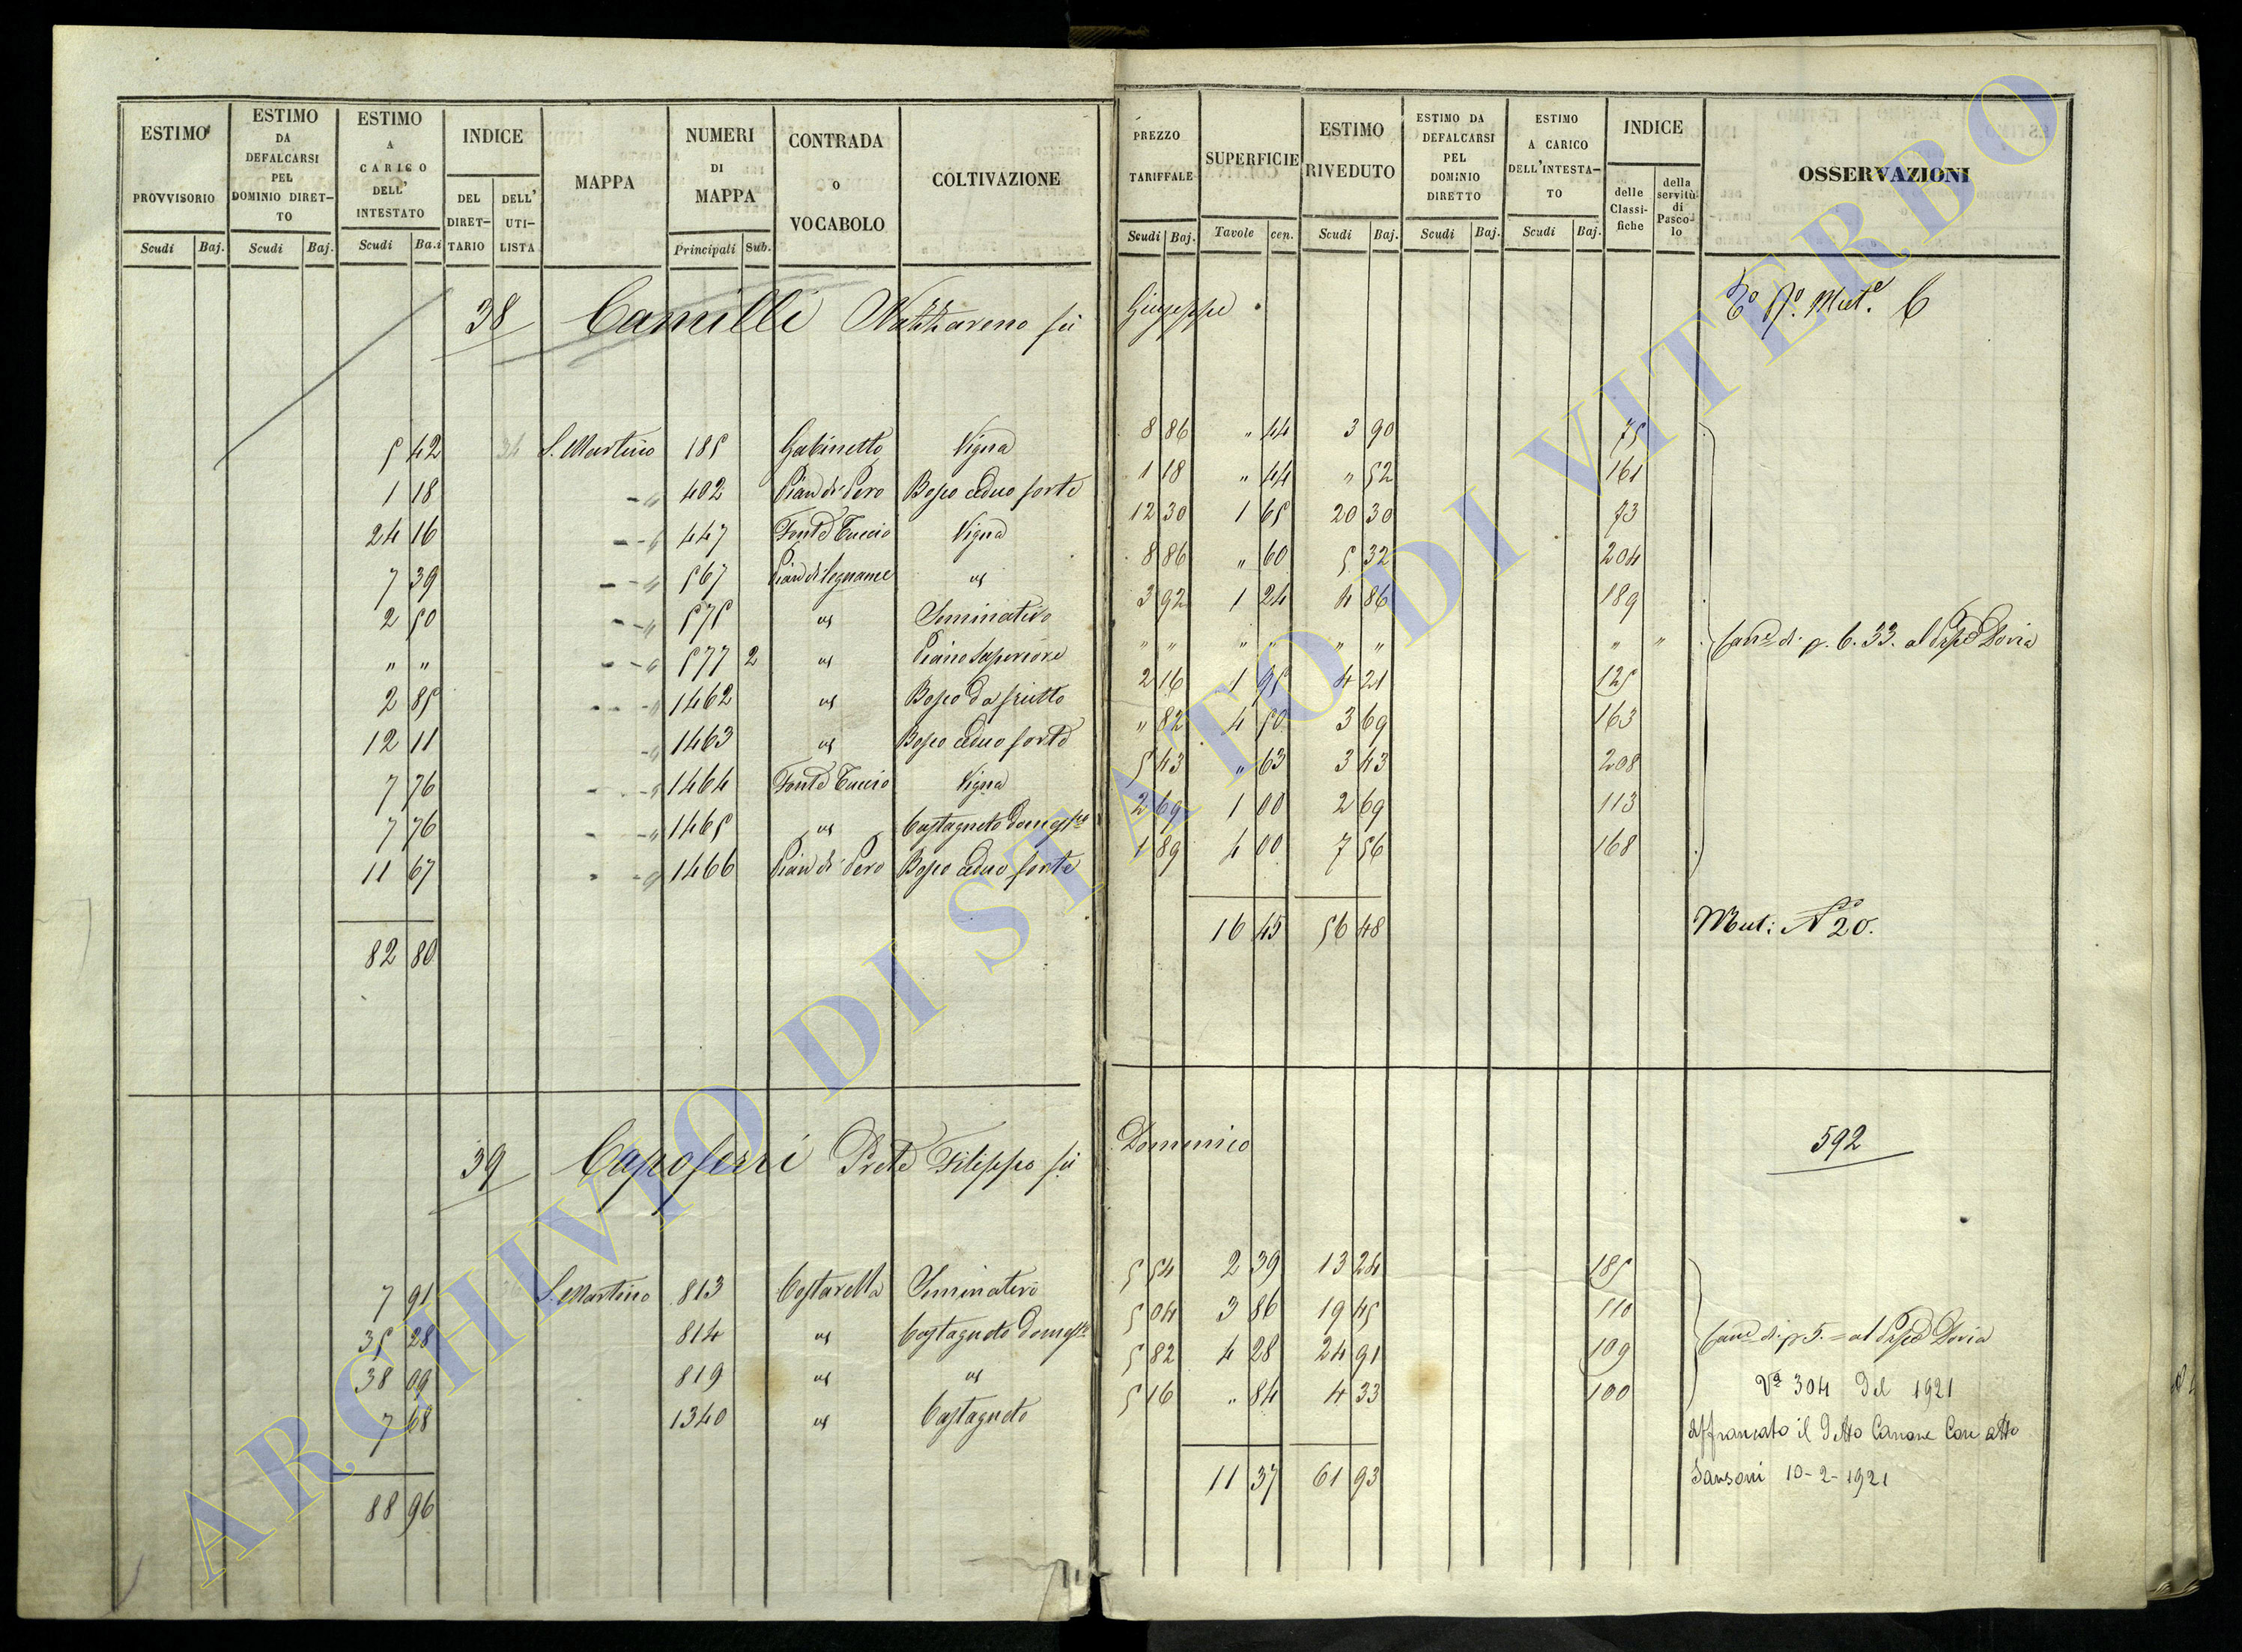 ESTIMO PROVVISORIO | ESTIMO DA DEFALCARSI PEL DOMINIO DIRETTO | ESTIMO A CARICO DELL' INTESTATO | INDICE DEL DIRETTARIO | DELL' UTILISTA | MAPPA | NUMERI DI MAPPA | CONTRADA O VOCABOLO | COLTIVAZIONE | PREZZO TARIFFALE | SUPERFICIE | ESTIMO RIVEDUTO | ESTIMO DA DEFALCARSI PEL DOMINIO DIRETTO | ESTIMO A CARICO DELL'INTESTATO | INDICE delle Classifiche | della servitù di Pascolo | OSSERVAZIONI
Scudi Baj. | Scudi Baj. | Scudi Ba.i | Principali Sub. | Scudi Baj. | Tavole cen. | Scudi Baj. | Scudi Baj. | Scudi Baj.
38 Camilli Nazzareno fu Giuseppe
5 42 34 S. Martino 185 Gabinetto Vigna 8 86 " 44 3 90 75
1 18 " 402 Pian di Pero Bosco ceduo forte 1 18 " 44 " 52 161
24 16 " 447 Fonte Tuccio Vigna 12 30 1 65 20 30 73
7 39 " 567 Pian di Legname " 8 86 " 60 5 32 204
2 50 " 575 " Seminativo 3 92 1 24 4 86 189
" " " 577 2 " Piano Superiore " " " " " " " " Cane di p. 6.33. al Pspe Doria
2 85 " 1462 " Bosco da frutto 2 16 1 95 4 21 125
12 11 " 1463 " Bosco ceduo forte " 82 4 50 3 69 163
7 76 " 1464 Fonte Tuccio Vigna 5 43 " 63 3 43 208
7 76 " 1465 " Castagneto domestco 2 69 1 00 2 69 113
11 67 " 1466 Pian di Pero Bosco ceduo forte 1 89 4 00 7 56 168
82 80 16 45 56 48 Mut: No 20.
39 Capoferri Prete Filippo fu Domenico 592
7 91 S. Martino 813 Costarella Seminativo 5 54 2 39 13 24 185
35 28 814 " Castagneto domestco 5 04 3 86 19 45 110
38 09 819 " " 5 82 4 28 24 91 109 Cane di p 5.= al Pspe Doria
7 68 1340 " Castagneto 5 16 " 84 4 33 100 Va 304 del 1921
Affrancato il detto Canone Con atto
88 96 11 37 61 93 Sansoni 10-2-1921
ARCHIVIO DI STATO DI VITERBO